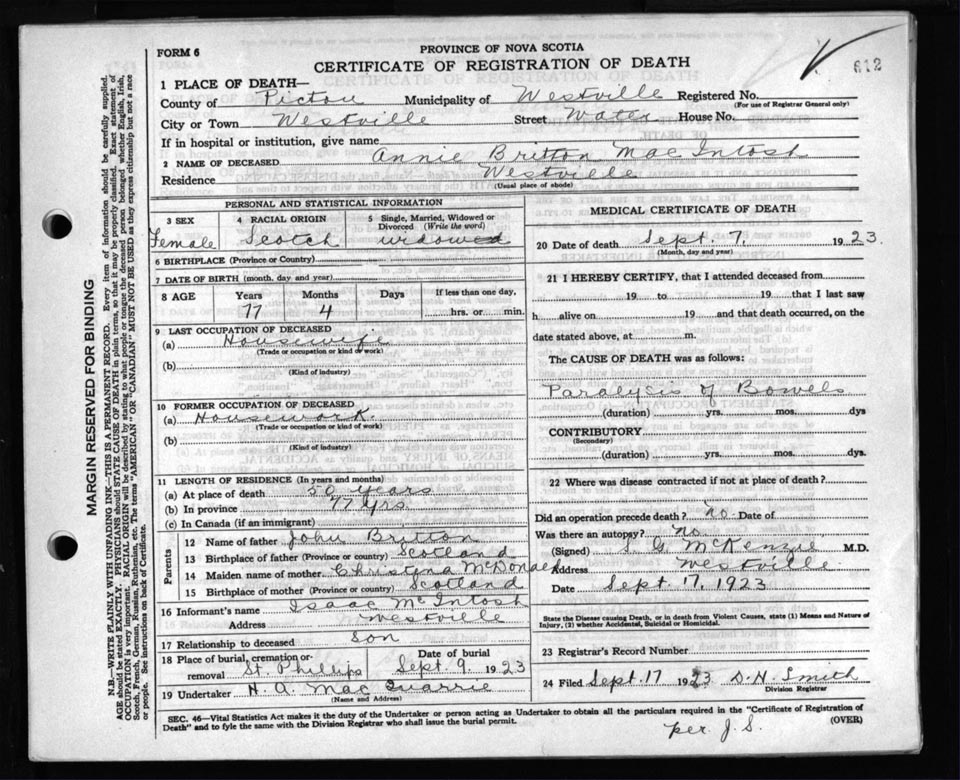 FORM 6
PROVINCE OF NOVA SCOTIA
CERTIFICATE OF REGISTRATION OF DEATH
612
1 PLACE OF DEATH—
County of Pictou Municipality of Westville Registered No.
(For use of Registrar General only)
City or Town Westville Street Water House No.
If in hospital or institution, give name
2 NAME OF DECEASED Annie Britton MacIntosh
Residence Westville
(Usual place of abode)
PERSONAL AND STATISTICAL INFORMATION
3 SEX 4 RACIAL ORIGIN 5 Single, Married, Widowed or Divorced (Write the word)
Female Scotch widowed
6 BIRTHPLACE (Province or Country)
7 DATE OF BIRTH (month, day and year)
8 AGE Years Months Days If less than one day,
77 4 hrs. or min.
9 LAST OCCUPATION OF DECEASED
(a) Housewife
(Trade or occupation or kind of work)
(b)
(Kind of industry)
10 FORMER OCCUPATION OF DECEASED
(a) Housework
(Trade or occupation or kind of work)
(b)
(Kind of industry)
11 LENGTH OF RESIDENCE (In years and months)
(a) At place of death 50 years
(b) In province 77 yrs.
(c) In Canada (if an immigrant)
Parents
12 Name of father John Britton
13 Birthplace of father (Province or country) Scotland
14 Maiden name of mother Christena McDonald
15 Birthplace of mother (Province or country) Scotland
16 Informant's name Isaac McIntosh
Address Westville
17 Relationship to deceased Son
18 Place of burial, cremation or removal St. Phillips Date of burial Sept. 9, 1923
19 Undertaker H. A. MacQuarrie
(Name and Address)
MEDICAL CERTIFICATE OF DEATH
20 Date of death Sept. 7, 1923.
(Month, day and year)
21 I HEREBY CERTIFY, that I attended deceased from
19 to 19 that I last saw
h alive on 19 and that death occurred, on the
date stated above, at m.
The CAUSE OF DEATH was as follows:
Paralycis of Bowels
(duration) yrs. mos. dys
CONTRIBUTORY
(Secondary)
(duration) yrs. mos. dys.
22 Where was disease contracted if not at place of death?
Did an operation precede death? no. Date of
Was there an autopsy? no.
(Signed) G McKenzie M.D.
Address Westville
Date Sept. 17, 1923
State the Disease causing Death, or in death from Violent Causes, state (1) Means and Nature of
Injury, (2) whether Accidental, Suicidal or Homicidal.
23 Registrar's Record Number
24 Filed Sept. 17 1923 D. H. Smith
Division Registrar
SEC. 46—Vital Statistics Act makes it the duty of the Undertaker or person acting as Undertaker to obtain all the particulars required in the "Certificate of Registration of
Death" and to fyle the same with the Division Registrar who shall issue the burial permit.
(OVER)
per. J. S.
MARGIN RESERVED FOR BINDING
N.B.—WRITE PLAINLY WITH UNFADING INK—THIS IS A PERMANENT RECORD. Every item of information should be carefully supplied.
AGE should be stated EXACTLY. PHYSICIANS should STATE CAUSE OF DEATH in plain terms, so that it may be properly classified. Exact statement of
OCCUPATION is very important. RACIAL ORIGIN will be described by stating to what people or tongue the deceased person belonged whether English, Irish,
Scotch, French, German, Russian, Ruthenian, etc. The terms "AMERICAN" OR "CANADIAN" MUST NOT BE USED as they express citizenship but not a race
or people. See instructions on back of Certificate.